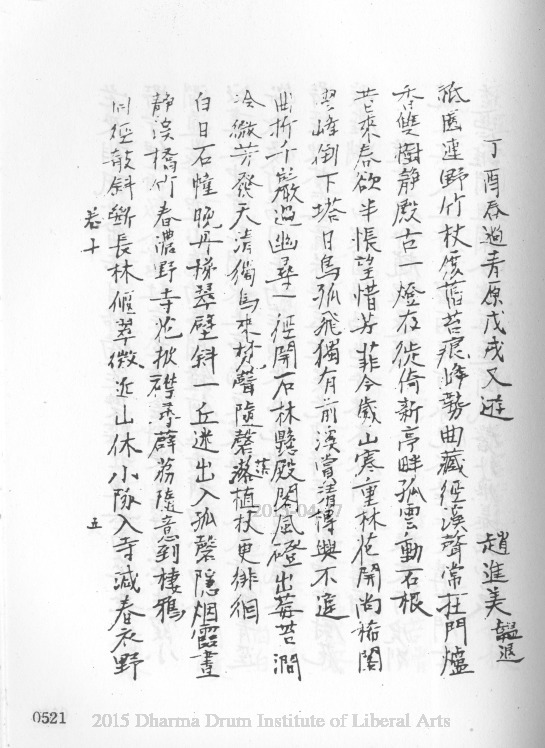 丁酉春過青原戊戌又遊
趙進美 韞退
祇園連野竹杖屐舊苔痕峰勢曲藏徑溪聲常在門爐
香雙樹靜殿古一燈存徙倚新亭畔孤雲動石根
昔來春欲半悵望惜芳菲今歲山寒重林花開尚稀閣
翠峰倒下塔日鳥孤飛獨有前溪當清得興不違
曲折千巖過幽尋一徑開石林懸殿閣風磴出莓苔澗
冷微芳發天清獨鳥來梵聲隨磬落植杖更徘徊
白日石幢晚丹梯翠壁斜一丘迷出入孤磬隱烟霞晝
靜溪橋竹春濃野寺花披襟尋薜荔隨意到棲鴉
徑敧斜斷長林偃翠微近山休小隊入寺減春衣野
卷十
五
0521
2015 Dharma Drum Institute of Liberal Arts